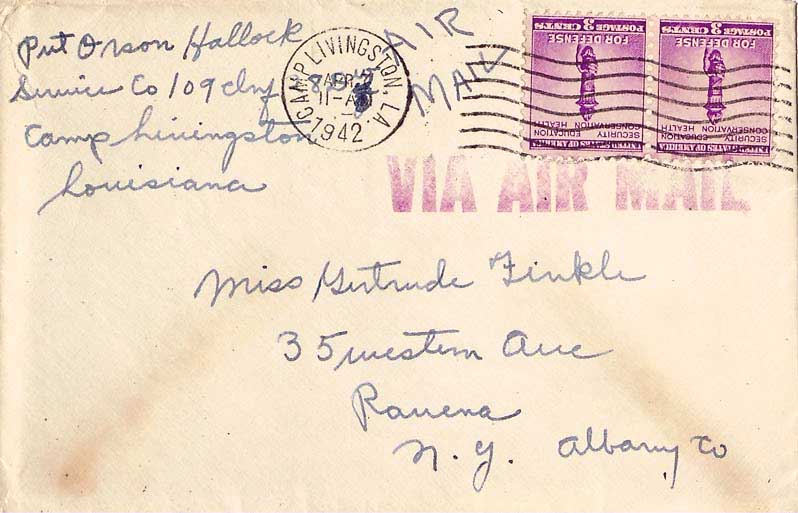 Pvt Orson Hallock
Service Co 109 Inf
Camp Livingston
Louisiana
AIR
MAIL
CAMP LIVINGSTON, LA.
APR
11-AM
1942
UNITED STATES OF AMERICA
SECURITY EDUCATION
CONSERVATION HEALTH
FOR DEFENSE
POSTAGE 3 CENTS
UNITED STATES OF AMERICA
SECURITY EDUCATION
CONSERVATION HEALTH
FOR DEFENSE
POSTAGE 3 CENTS
VIA AIR MAIL
Miss Gertrude Finkle
35 western Ave
Ravena
N.Y. Albany Co